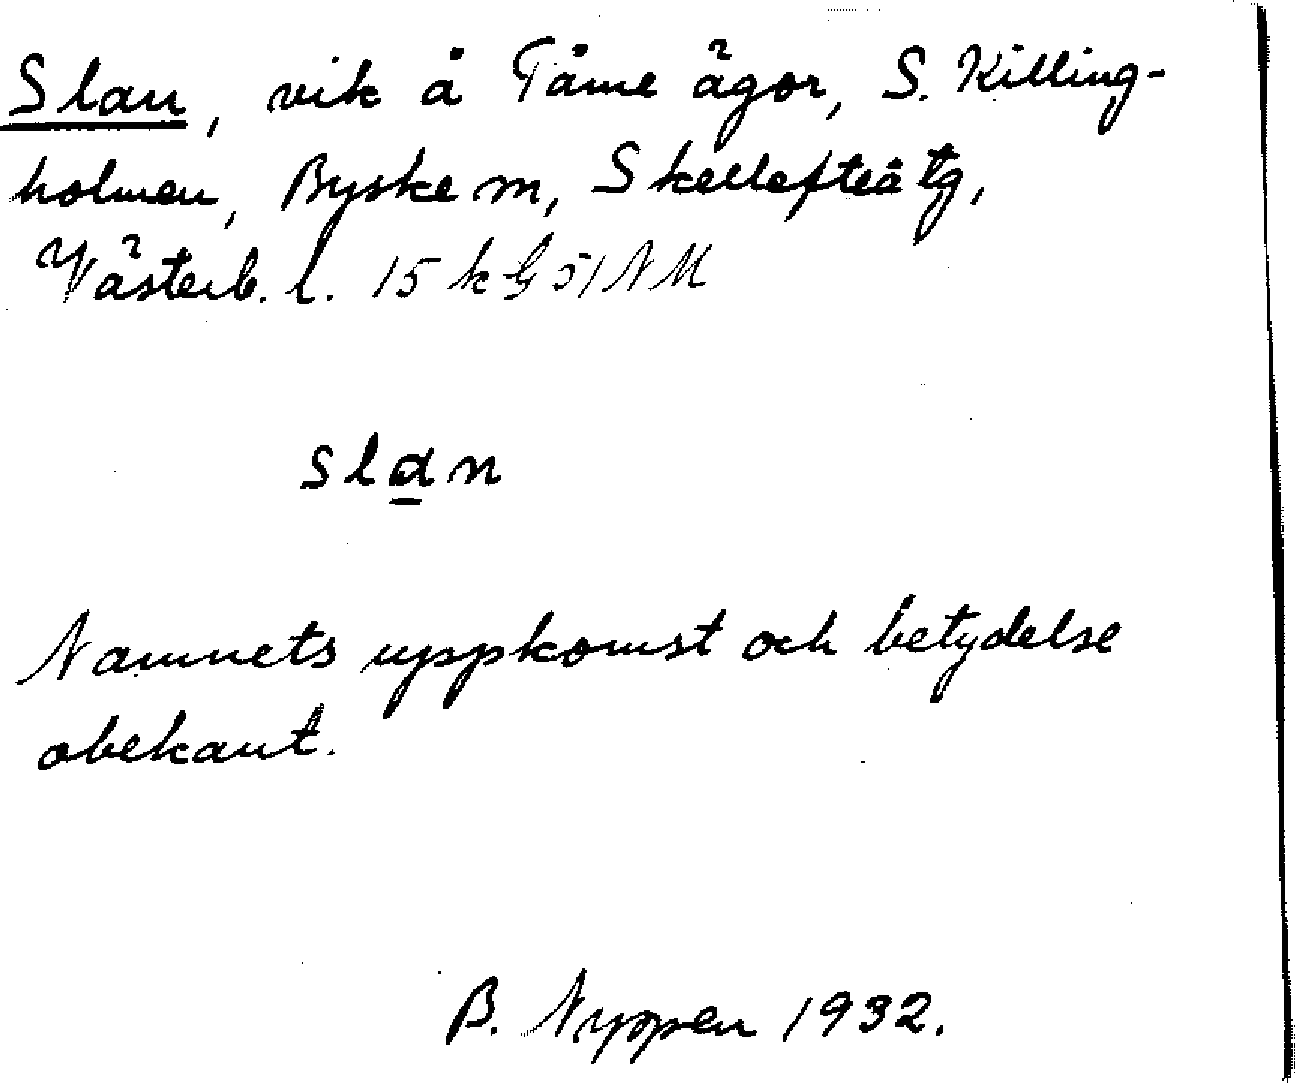 Slan, vik å Tåme ägor, S. Killing-
holmen, Byske sn, Skellefteå tg,
Västerb. l. 15 k G 51 NM
slan
Namnets uppkomst och betydelse
obekant.
B. Nyppen 1932.